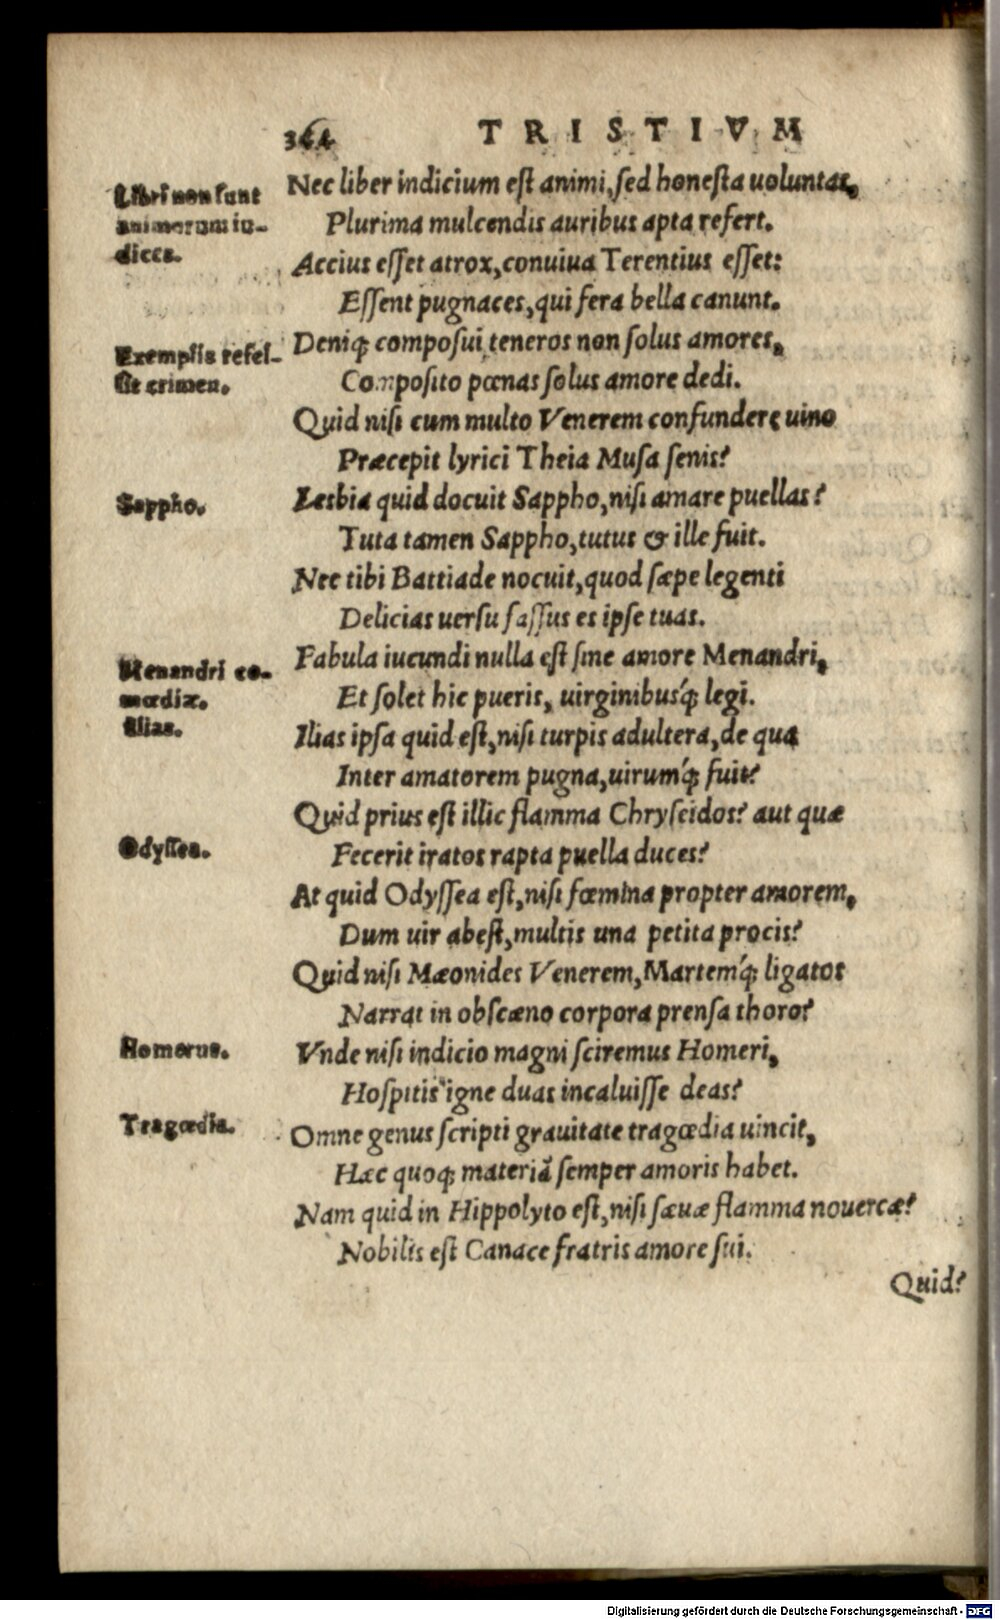 TRISTIVM
Libri non sunt
animorum in-
dices.
Nec liber indicium est animi, sed honesta uoluntas,
Plurima mulcendis auribus apta refert.
Accius esset atrox, conuiua Terentius esset:
Essent pugnaces, qui fera bella canunt.
Exemplis refel-
lit crimen.
Deniq; composui teneros non solus amores,
Composito pœnas solus amore dedi.
Quid nisi cum multo Venerem confundere uino
Præcepit lyrici Theia Musa senis?
Sappho.
Lesbia quid docuit Sappho, nisi amare puellas?
Tuta tamen Sappho, tutus & ille fuit.
Nec tibi Battiade nocuit, quod sæpe legenti
Delicias uersu fassus es ipse tuas.
Menandri co-
mœdiæ.
Fabula iucundi nulla est sine amore Menandri,
Et solet hic pueris, uirginibusq́; legi.
Ilias.
Ilias ipsa quid est, nisi turpis adultera, de qua
Inter amatorem pugna, uirumq́; fuit?
Quid prius est illic flamma Chryseidos? aut quæ
Fecerit iratos rapta puella duces?
Odyssea.
At quid Odyssea est, nisi fœmina propter amorem,
Dum uir abest, multis una petita procis?
Quid nisi Mæonides Venerem, Martemq́; ligatos
Narrat in obscæno corpora prensa thoro?
Homerus.
Vnde nisi indicio magni sciremus Homeri,
Hospitis igne duas incaluisse deas?
Tragœdia.
Omne genus scripti grauitate tragœdia uincit,
Hæc quoq; materiā semper amoris habet.
Nam quid in Hippolyto est, nisi sæuæ flamma nouercæ?
Nobilis est Canace fratris amore sui.
Quid?
Digitalisierung gefördert durch die Deutsche Forschungsgemeinschaft - DFG